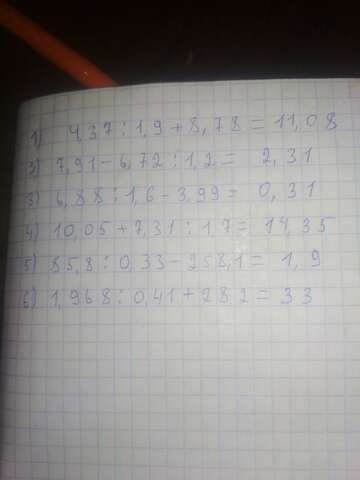 1) 4,37 : 1,9 + 8,78 = 11,08
2) 7,91 - 6,72 : 1,2 = 2,31
3) 6,88 : 1,6 - 3,99 = 0,31
4) 10,05 + 7,31 : 1,7 = 14,35
5) 85,8 : 0,33 - 258,1 = 1,9
6) 1,968 : 0,41 + 28,2 = 33